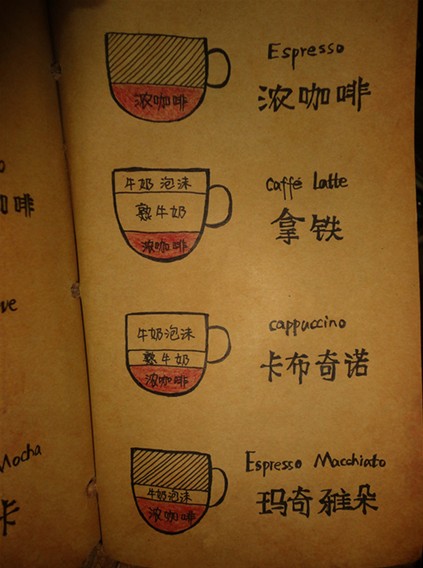 咖啡
ve
Mocha
卡
浓咖啡
Espresso
浓咖啡
牛奶泡沫
熟牛奶
浓咖啡
Caffé Latte
拿铁
牛奶泡沫
熟牛奶
浓咖啡
cappuccino
卡布奇诺
牛奶泡沫
浓咖啡
Espresso Macchiato
玛奇雅朵